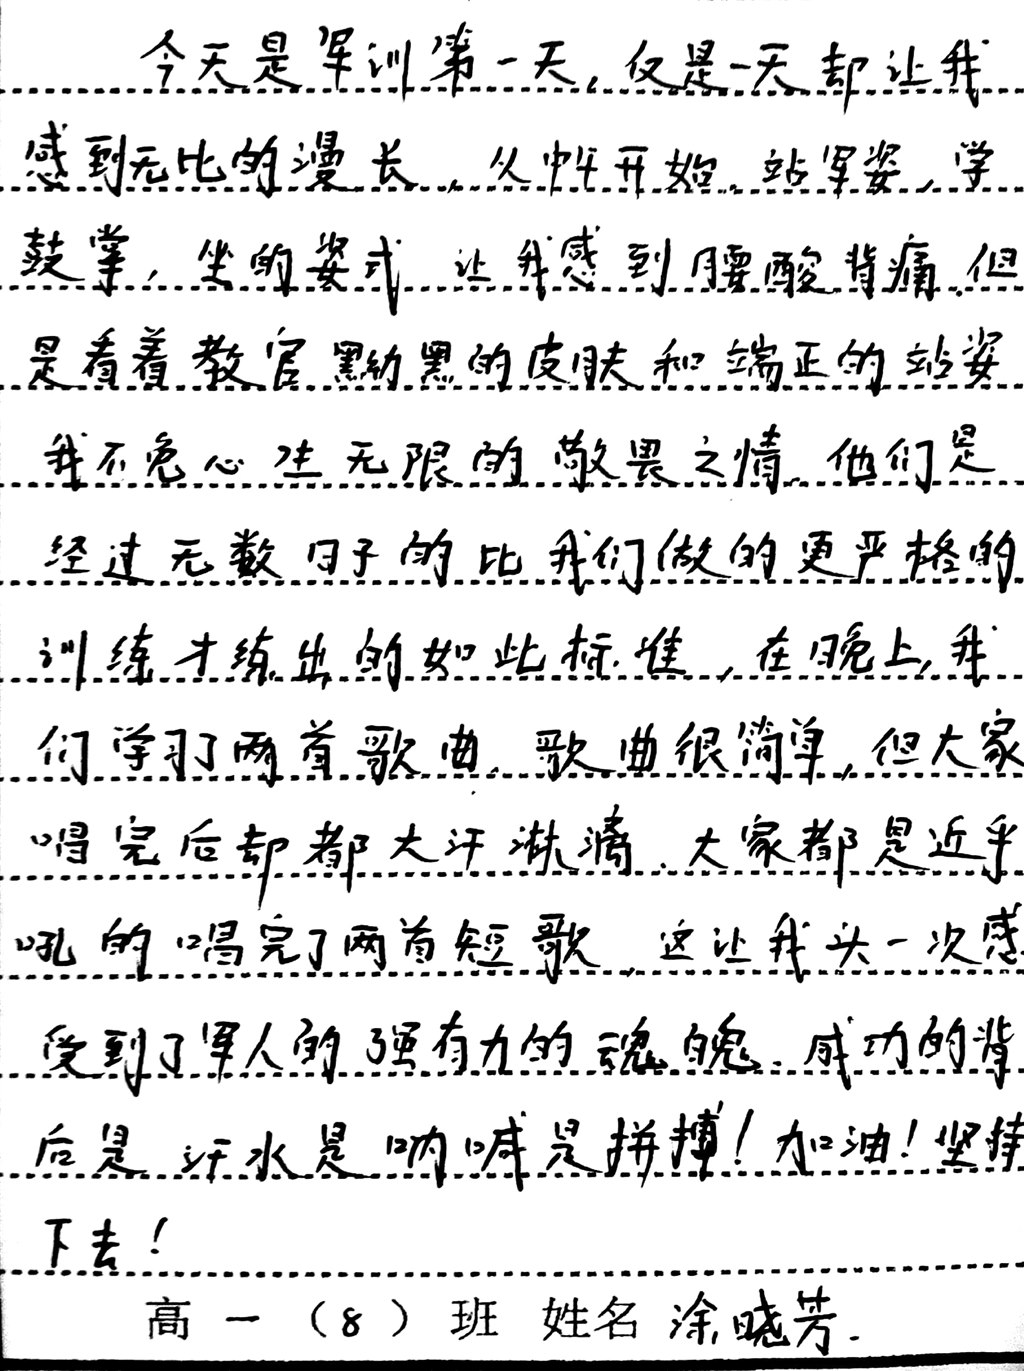 今天是军训第一天，仅是一天却让我
感到无比的漫长，从中午开始，站军姿，学
鼓掌，坐的姿式 让我感到腰酸背痛，但
是看着教官黝黑的皮肤和端正的站姿
我不免心生无限的敬畏之情，他们是
经过无数日子的比我们做的更严格的
训练才练出的如此标准，在晚上，我
们学习了两首歌曲，歌曲很简单，但大家
唱完后却都大汗淋漓．大家都是近乎
吼的唱完了两首短歌，这让我头一次感
受到了军人的强有力的魂魄．成功的背
后是汗水是呐喊是拼搏！加油！坚持
下去！
高一（8）班 姓名 涂晓芳.